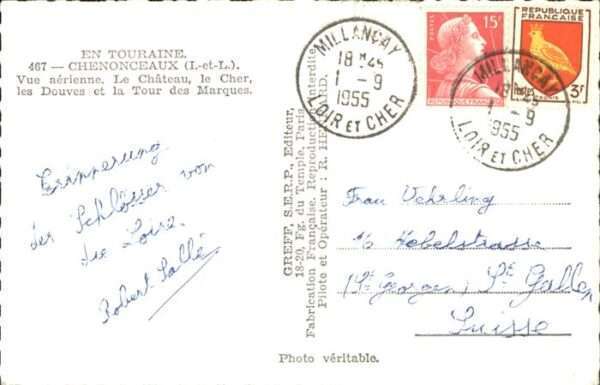 EN TOURAINE.
467 — CHENONCEAUX (I.-et-L.).
Vue aérienne. Le Château, le Cher,
les Douves et la Tour des Marques.
Erinnerung
der Schlösser von
die Loire.
Robert Sallé
GREFF, S.E.R.P., Editeur,
18-20, Fg. du Temple, Paris
Fabrication Française. Reproduction interdite
Pilote et Opérateur : R. HENRARD.
Photo véritable.
MILLANÇAY
18H45
1-9
1955
LOIR ET CHER
15F
REPUBLIQUE FRANÇAISE
MILLANÇAY
18H45
1-9
1955
LOIR ET CHER
REPUBLIQUE
FRANÇAISE
Postes
3F
Frau Vehrling
16 Hebelstrasse
(St Georgen) St Gallen
Suisse